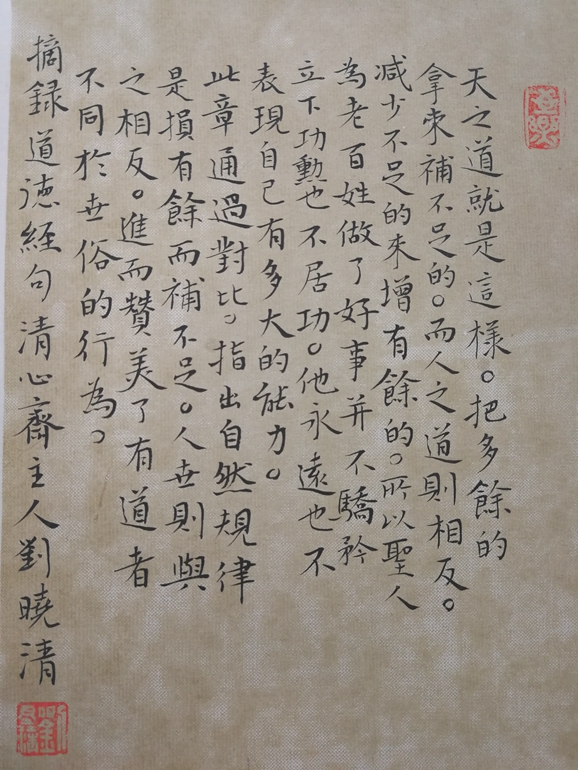 天之道就是這樣。把多餘的
拿來補不足的。而人之道則相反。
减少不足的來增有餘的。所以聖人
為老百姓做了好事并不驕矜
立下功勳也不居功。他永遠也不
表現自己有多大的能力。
此章通過對比。指出自然規律
是損有餘而補不足。人世則與
之相反。進而贊美了有道者
不同於世俗的行為。
摘録道德經句清心齋主人劉曉清